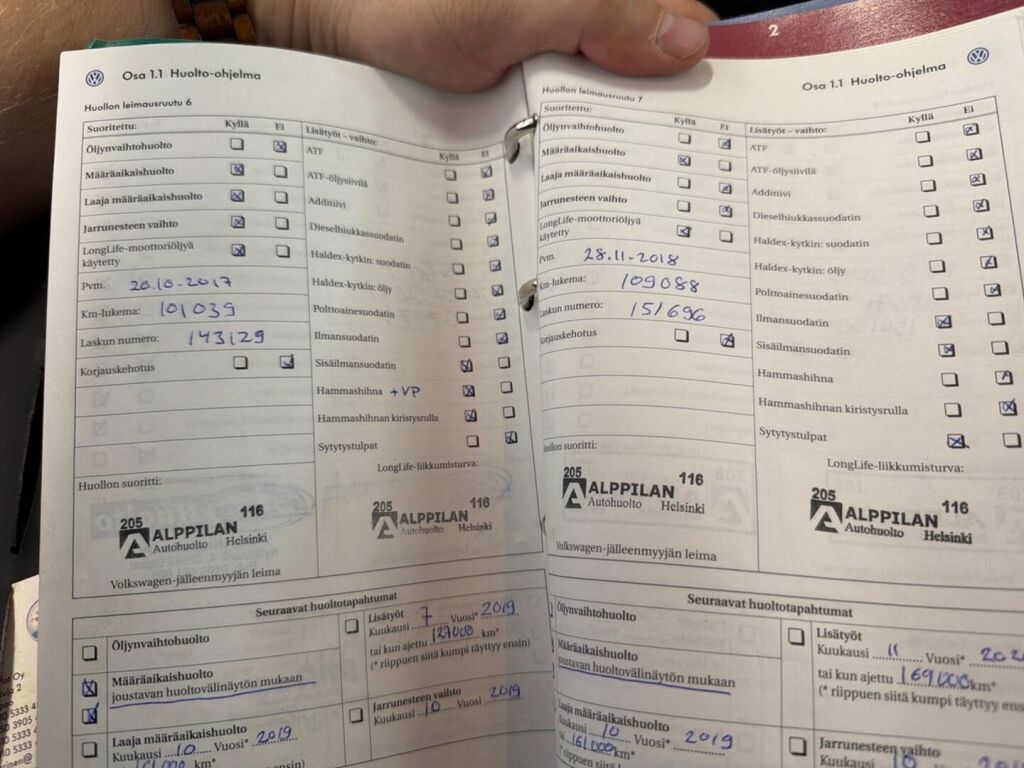 2
Osa 1.1 Huolto-ohjelma
Huollon leimausruutu 6
Suoritettu: Kyllä Ei
Öljynvaihtohuolto
Määräaikaishuolto
Laaja määräaikaishuolto
Jarrunesteen vaihto
LongLife-moottoriöljyä
käytetty
Pvm. 20.10.2017
Km-lukema: 101039
Laskun numero: 143129
Korjauskehotus
Huollon suoritti:
205 116
ALPPILAN
Autohuolto Helsinki
Volkswagen-jälleenmyyjän leima
Lisätyöt – vaihto: Kyllä Ei
ATF
ATF-öljysiivilä
Additiivi
Dieselhiukkassuodatin
Haldex-kytkin: suodatin
Haldex-kytkin: öljy
Polttoainesuodatin
Ilmansuodatin
Sisäilmansuodatin
Hammashihna + VP
Hammashihnan kiristysrulla
Sytytystulpat
LongLife-liikkumisturva:
205 116
ALPPILAN
Autohuolto Helsinki
Seuraavat huoltotapahtumat
Öljynvaihtohuolto
Määräaikaishuolto
joustavan huoltovälinäytön mukaan
Laaja määräaikaishuolto
Kuukausi 10 Vuosi* 2019
Lisätyöt
Kuukausi 7 Vuosi* 2019
tai kun ajettu 127000 km*
(* riippuen siitä kumpi täyttyy ensin)
Jarrunesteen vaihto
Kuukausi 10 Vuosi 2019
Osa 1.1 Huolto-ohjelma
Huollon leimausruutu 7
Suoritettu: Kyllä Ei
Öljynvaihtohuolto
Määräaikaishuolto
Laaja määräaikaishuolto
Jarrunesteen vaihto
LongLife-moottoriöljyä
käytetty
Pvm. 28.11.2018
Km-lukema: 109088
Laskun numero: 151696
Korjauskehotus
Huollon suoritti:
205 116
ALPPILAN
Autohuolto Helsinki
Volkswagen-jälleenmyyjän leima
Lisätyöt – vaihto: Kyllä Ei
ATF
ATF-öljysiivilä
Additiivi
Dieselhiukkassuodatin
Haldex-kytkin: suodatin
Haldex-kytkin: öljy
Polttoainesuodatin
Ilmansuodatin
Sisäilmansuodatin
Hammashihna
Hammashihnan kiristysrulla
Sytytystulpat
LongLife-liikkumisturva:
205 116
ALPPILAN
Autohuolto Helsinki
Seuraavat huoltotapahtumat
Öljynvaihtohuolto
Määräaikaishuolto
joustavan huoltovälinäytön mukaan
Laaja määräaikaishuolto
Kuukausi 10 Vuosi* 2019
161.000 km*
(* riippuen siitä kumpi täyttyy ensin)
Lisätyöt
Kuukausi 11 Vuosi*
tai kun ajettu 169.000 km*
(* riippuen siitä kumpi täyttyy
Jarrunesteen vaihto
Kuukausi 10 Vuosi